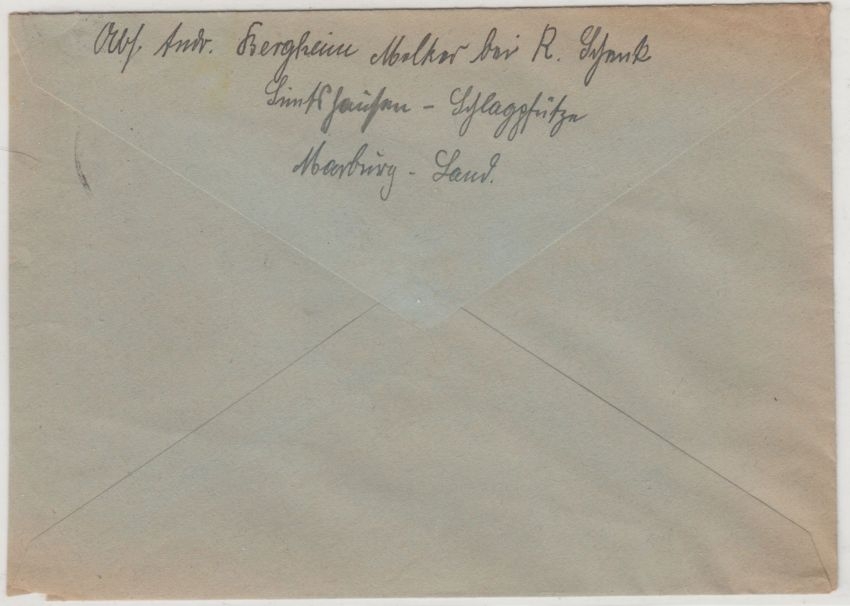 Abs. Andr. Bergheim Melker bei R. Schenk
Simtshausen - Schlagpfütze
Marburg - Land.